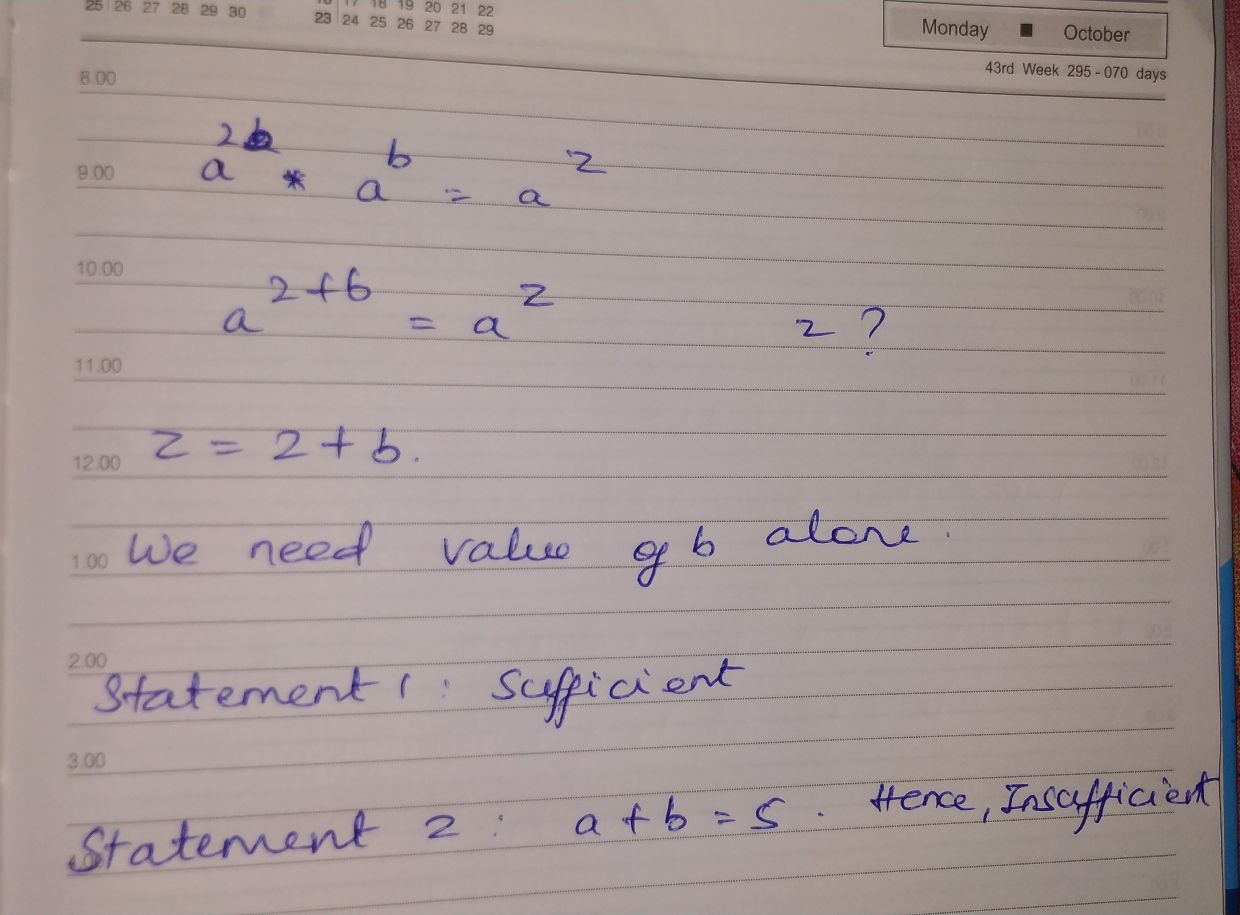 25 26 27 28 29 30
18 19 20 21 22
23 24 25 26 27 28 29
Monday ■ October
43rd Week 295 - 070 days
8.00
a^2 * a^b = a^z
9.00
10.00
a^2+b = a^z z ?
11.00
z = 2 + b.
12.00
We need value of b alone.
1.00
2.00
Statement 1 : Sufficient
3.00
Statement 2 : a + b = 5 . Hence, Insufficient